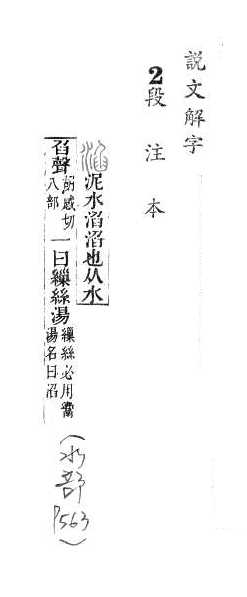 説文解字
2段注本
泥水淊淊也从水
臽聲胡感切八部一曰繅絲湯繅絲必用湯名曰淊
(水部P563)